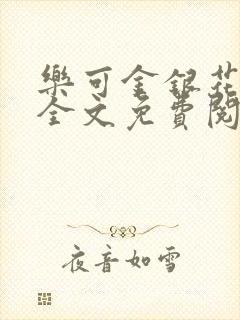 樂可金銀花
全文免費閱
夜音如雪